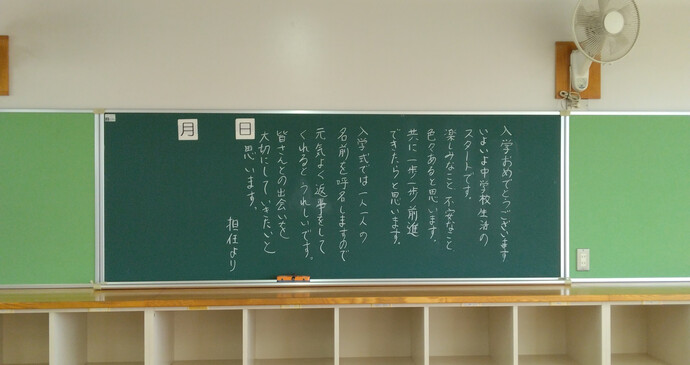 入学おめでとうございます
いよいよ中学校生活の
スタートです。
楽しみなこと 不安なこと
色々あると思います。
共に一歩一歩前進
できたらと思います。
入学式では一人一人の
名前を呼名しますので
元気よく返事をして
くれるとうれしいです。
皆さんとの出会いを
大切にしていきたいと
思います。
担任より
月 日